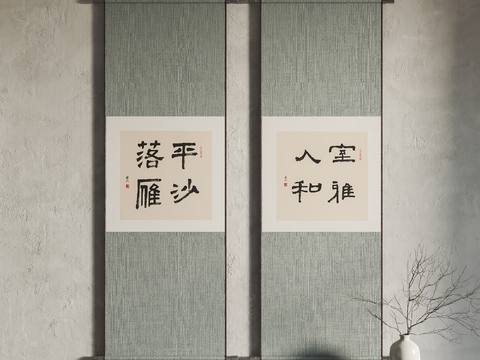 平沙
落雁
室雅
人和